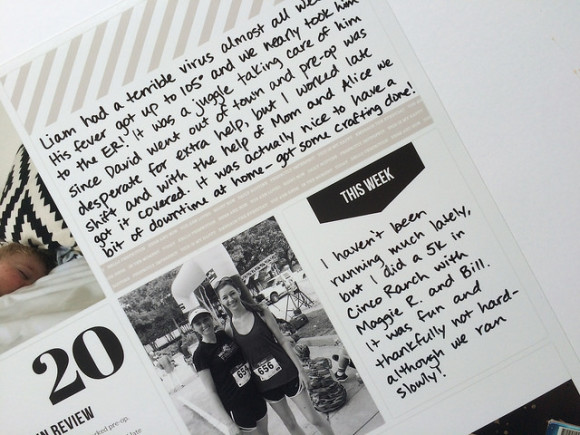 Liam had a terrible virus almost all week
His fever got up to 105° and we nearly took him
to the ER! It was a juggle taking care of him
since David went out of town and pre-op was
desperate for extra help, but I worked late
shift and with the help of Mom and Alice we
got it covered. It was actually nice to have a
bit of downtime at home - got some crafting done!
THIS WEEK
I haven't been
running much lately,
but I did a 5k in
Cinco Ranch with
Maggie R. and Bill.
It was fun and
thankfully not hard-
although we ran
slowly!
656
20
IN REVIEW
worked pre-op.
late